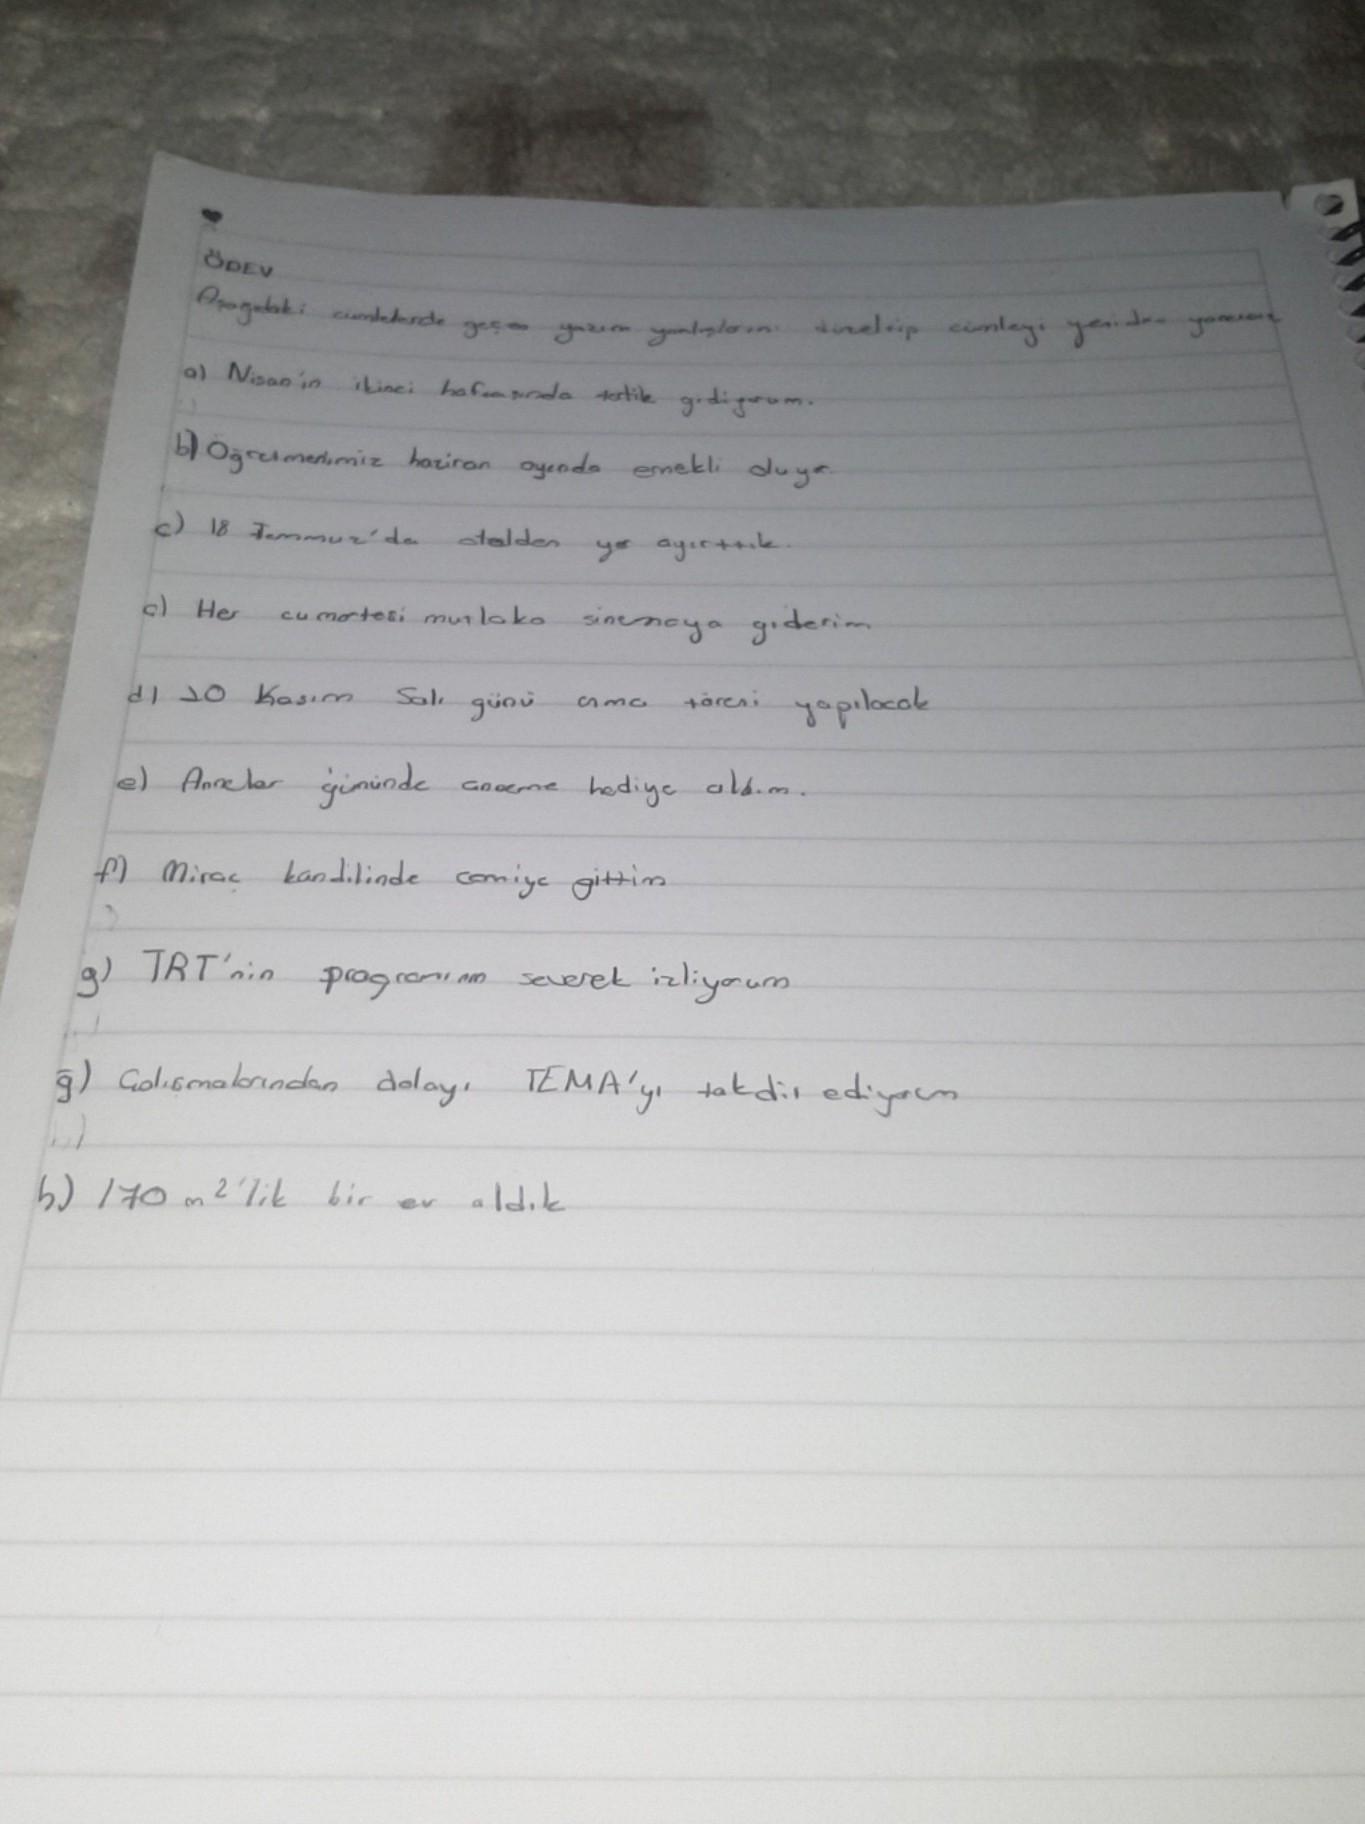 ÖDEV
Aşağıdaki cümlelerde geçen yazım yanlışlarını düzeltip cümleyi yeniden yazınız
a) Nisan'ın ikinci haftasında tatile gidiyorum.
b) Öğretmenimiz haziran ayında emekli oluyor
c) 18 Temmuz'da otelden yer ayırttık.
ç) Her cumartesi mutlaka sinemaya giderim
d) 10 Kasım Salı günü anma töreni yapılacak
e) Anneler gününde anneme hediye aldım.
f) Miraç kandilinde camiye gittim
g) TRT'nin programını severek izliyorum
ğ) Çalışmalarından dolayı TEMA'yı takdir ediyorum
h) 170 m2'lik bir ev aldık